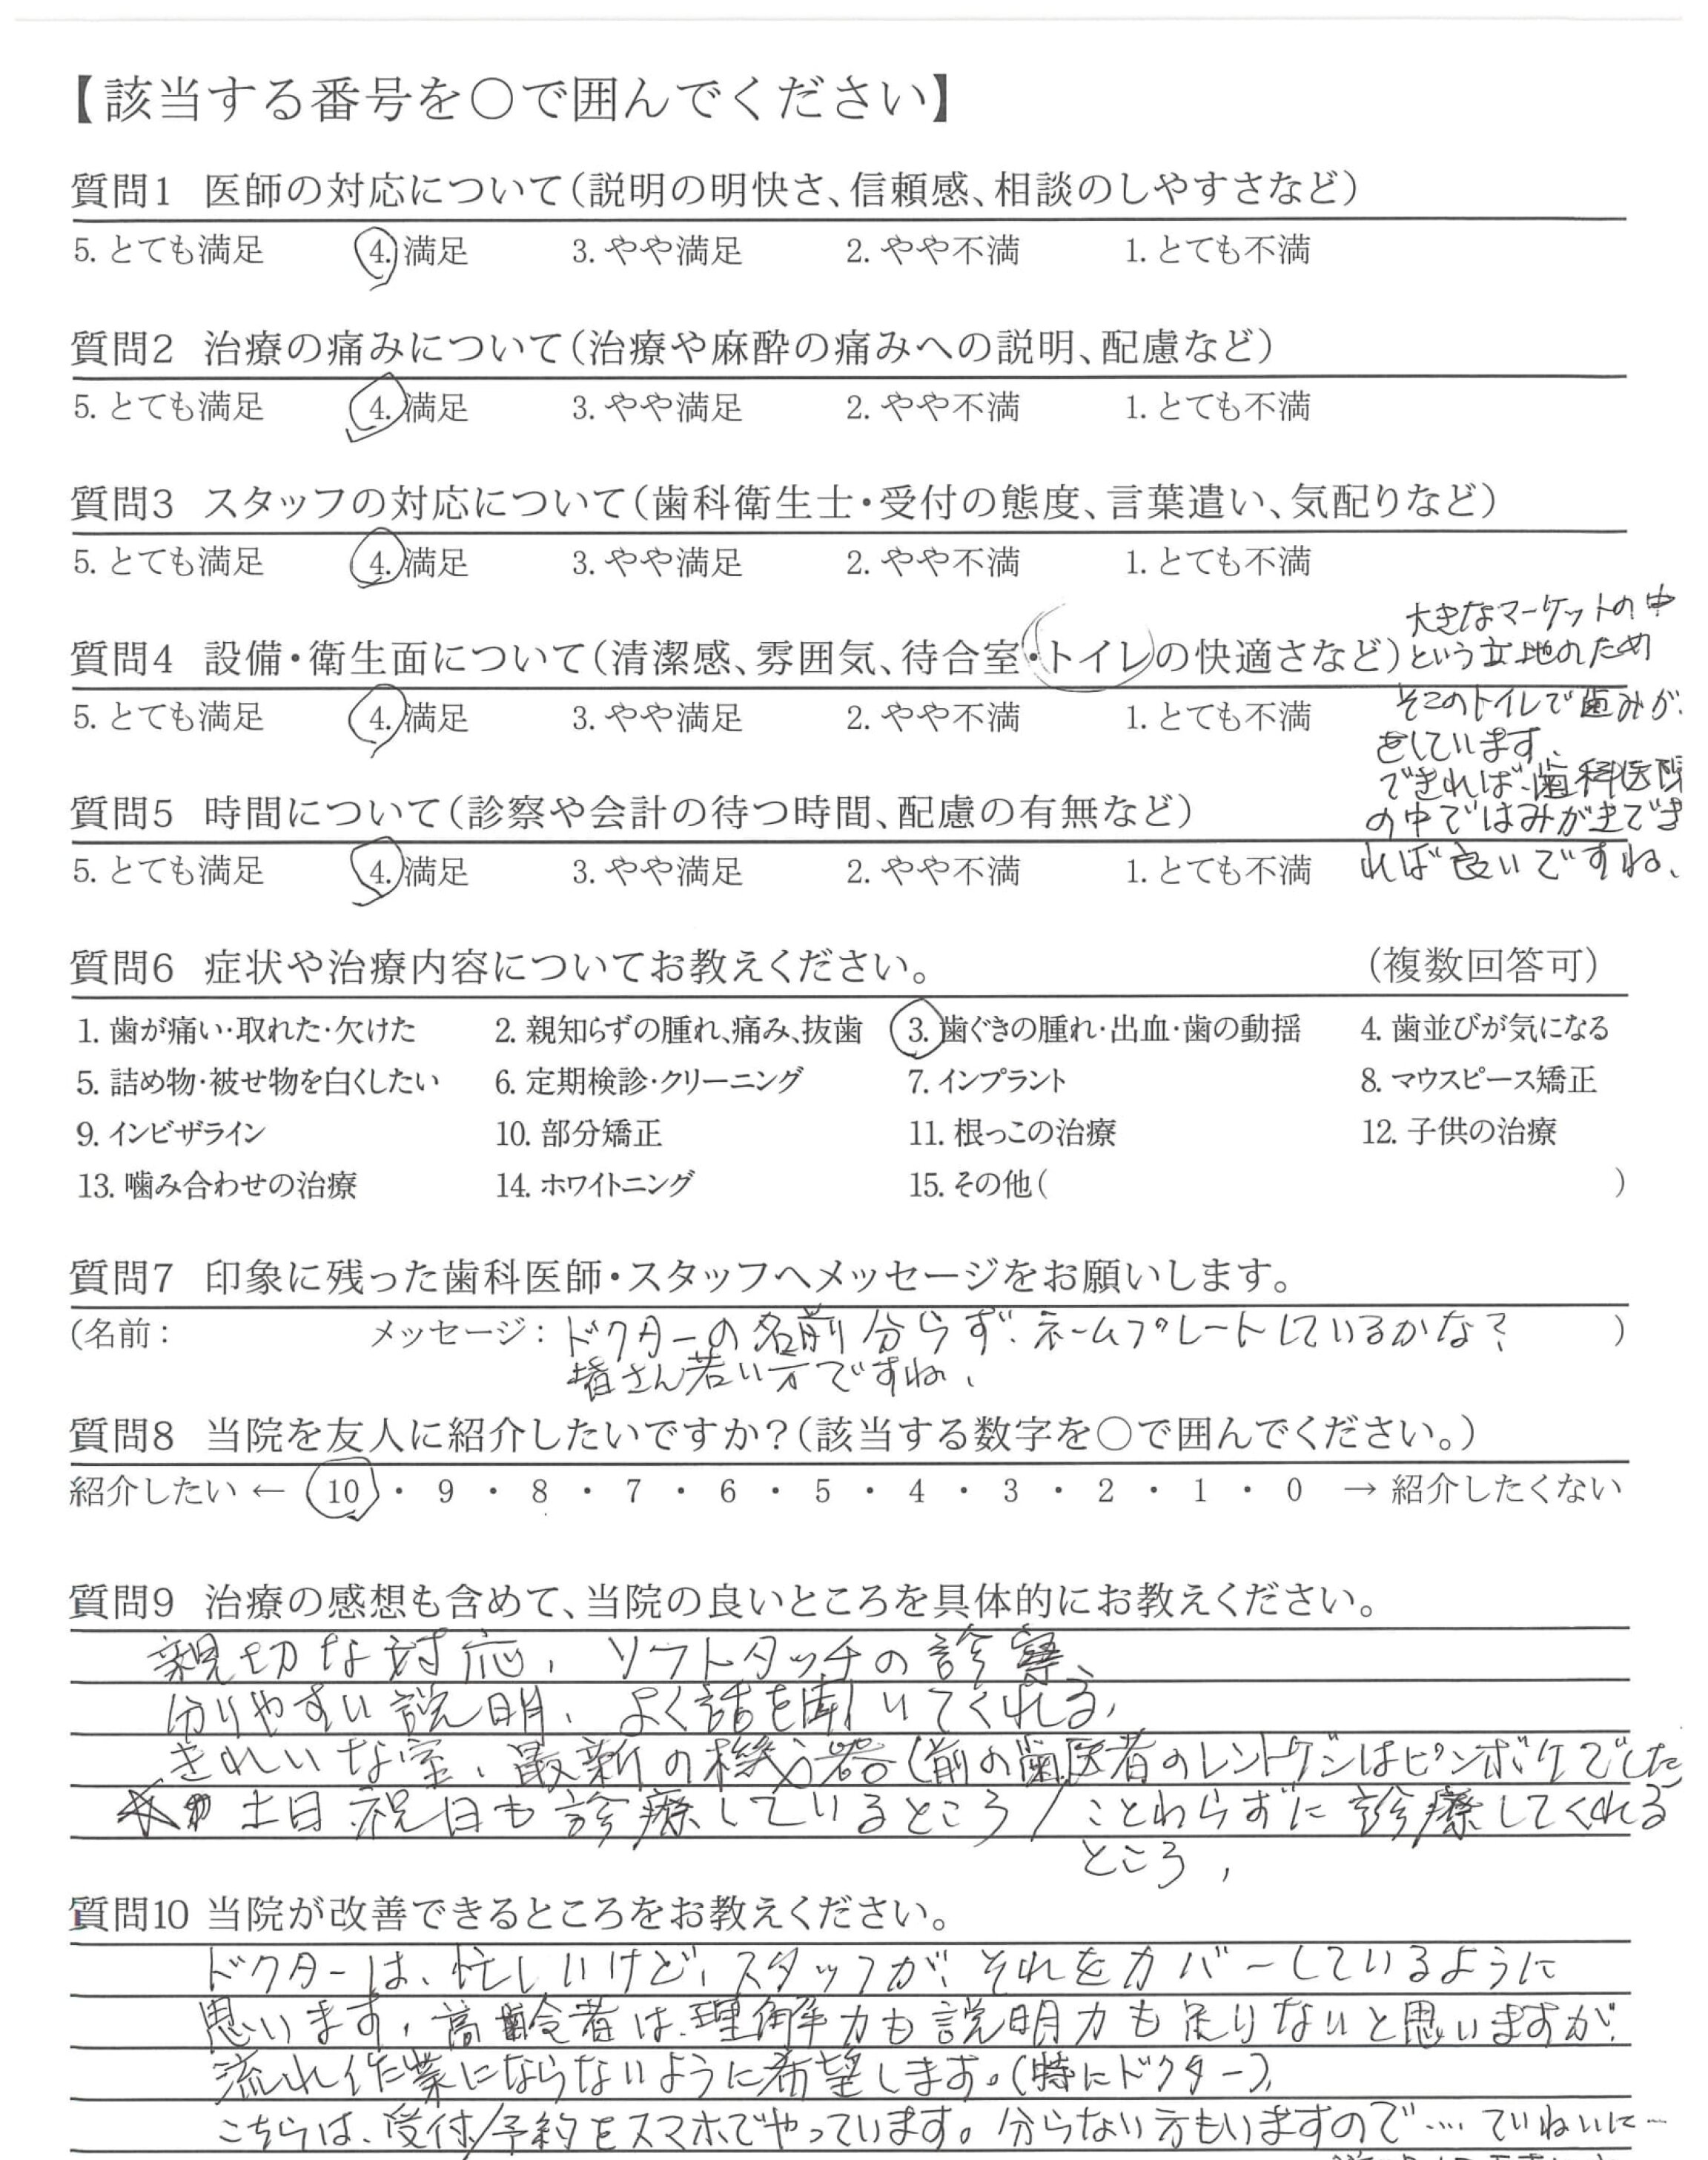 【該当する番号を○で囲んでください】
質問1 医師の対応について(説明の明快さ、信頼感、相談のしやすさなど)
5. とても満足 4. 満足 3. やや満足 2. やや不満 1. とても不満
質問2 治療の痛みについて(治療や麻酔の痛みへの説明、配慮など)
5. とても満足 4. 満足 3. やや満足 2. やや不満 1. とても不満
質問3 スタッフの対応について(歯科衛生士・受付の態度、言葉遣い、気配りなど)
5. とても満足 4. 満足 3. やや満足 2. やや不満 1. とても不満
質問4 設備・衛生面について(清潔感、雰囲気、待合室・トイレの快適さなど)
5. とても満足 4. 満足 3. やや満足 2. やや不満 1. とても不満
大きなマーケットの中
という立地のため
そこのトイレで歯みが
をしています、
できれば、歯科医院
の中ではみがきでき
れば良いですね、
質問5 時間について(診察や会計の待つ時間、配慮の有無など)
5. とても満足 4. 満足 3. やや満足 2. やや不満 1. とても不満
質問6 症状や治療内容についてお教えください。 (複数回答可)
1. 歯が痛い・取れた・欠けた 2. 親知らずの腫れ、痛み、抜歯 3. 歯ぐきの腫れ・出血・歯の動揺 4. 歯並びが気になる
5. 詰め物・被せ物を白くしたい 6. 定期検診・クリーニング 7. インプラント 8. マウスピース矯正
9. インビザライン 10. 部分矯正 11. 根っこの治療 12. 子供の治療
13. 噛み合わせの治療 14. ホワイトニング 15. その他( )
質問7 印象に残った歯科医師・スタッフへメッセージをお願いします。
(名前: メッセージ: ドクターの名前分らず、ネームプレートしているかな? )
皆さん若い方ですね、
質問8 当院を友人に紹介したいですか?(該当する数字を○で囲んでください。)
紹介したい ← 10 ・ 9 ・ 8 ・ 7 ・ 6 ・ 5 ・ 4 ・ 3 ・ 2 ・ 1 ・ 0 → 紹介したくない
質問9 治療の感想も含めて、当院の良いところを具体的にお教えください。
親切な対応、ソフトタッチの診察、
分りやすい説明、よく話を聞いてくれる、
きれいな室、最新の機器(前の歯医者のレントゲンはピンボケでした
土日祝日も診療しているところ/ことわらずに診療してくれる
ところ、
質問10 当院が改善できるところをお教えください。
ドクターは、忙しいけど、スタッフが、それをカバーしているように
思います、高齢者は、理解力も説明力も足りないと思いますが、
流れ作業にならないように希望します。(特にドクター)、
こちらは、受付/予約をスマホでやっています。分らない方もいますので…ていねいに…